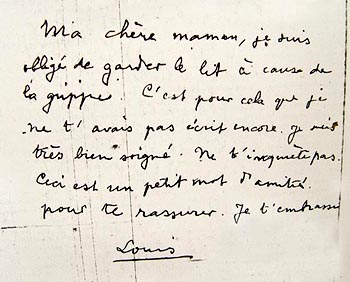 Ma chère maman, je suis
obligé de garder le lit à cause de
la grippe C'est pour cela que je
ne t'avais pas écrit encore. je suis
très bien soigné. Ne t'inquiète pas.
Ceci est un petit mot d'amitié.
pour te rassurer. Je t'embrasse
Louis